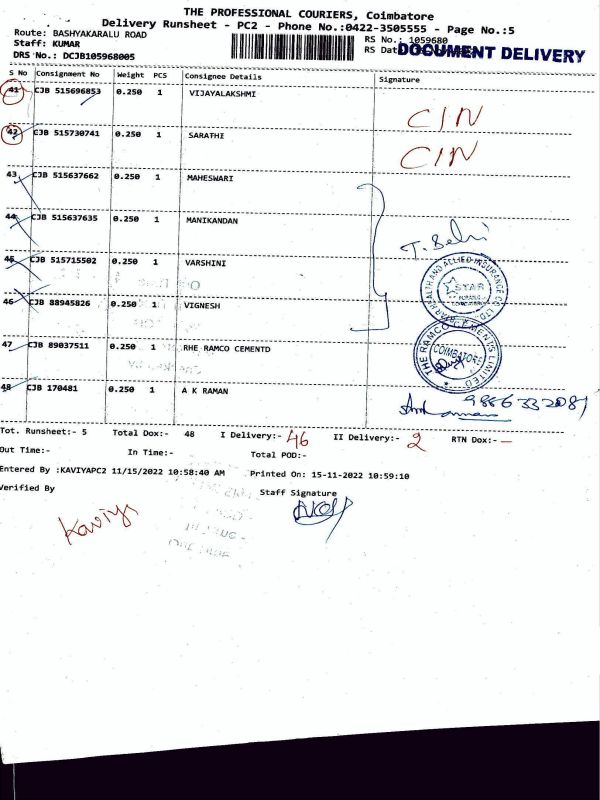 THE PROFESSIONAL COURIERS, Coimbatore
Delivery Runsheet - PC2 - Phone No.:0422-3505555 - Page No.:5
Route: BASHYAKARALU ROAD
RS No.: 1059680
Staff: KUMAR
RS Dat
DOCUMENT DELIVERY
DRS No.: DCJB105968005
S No Consignment No Weight PCS Consignee Details Signature
41 CJB 515696853 0.250 1 VIJAYALAKSHMI
CIN
42 CJB 515730741 0.250 1 SARATHI
CIN
43 CJB 515637662 0.250 1 MAHESWARI
44 CJB 515637635 0.250 1 MANIKANDAN
45 CJB 515715502 0.250 1 VARSHINI
STAR HEALTH AND ALLIED INSURANCE CO LTD
STAR
46 CJB 88945826 0.250 1 VIGNESH
47 CJB 89037511 0.250 1 RHE RAMCO CEMENTD
THE RAMCO CEMENTS LIMITED
COIMBATORE
48 CJB 170481 0.250 1 A K RAMAN
Tot. Runsheet:- 5 Total Dox:- 48 I Delivery:- 46 II Delivery:- 2 RTN Dox:- —
Out Time:- In Time:- Total POD:-
Entered By :KAVIYAPC2 11/15/2022 10:58:40 AM Printed On: 15-11-2022 10:59:10
Verified By Staff Signature
Kaviya